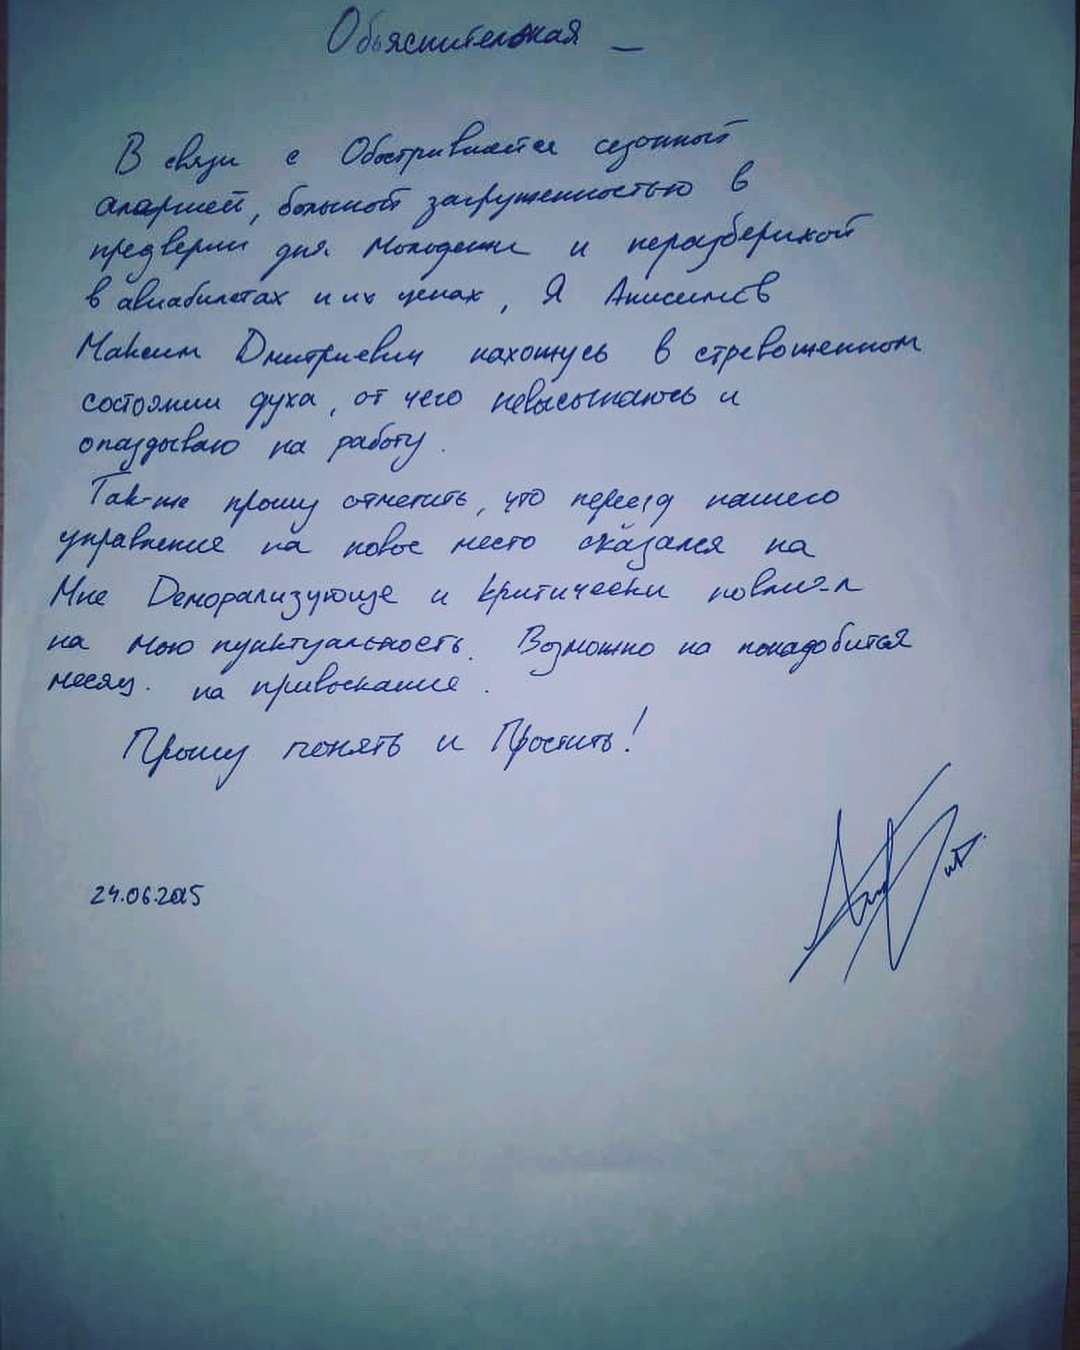 Обьяснительная
В связи с Обострившейся сезонной
алергией, большой загруженностью в
предверии дня Молодежи и неразберихой
в авиабилетах и их ценах, Я Анисимов
Максим Дмитриевич нахожусь в стревоженном
состоянии духа, от чего невысыпаюсь и
опаздываю на работу.
Так-же прошу отметить, что переезд нашего
управление на новое место сказался на
Мне Деморализующе и критически повлиял
на мою пунктуальность. Возможно на понадобится
месяц. на привыкание.
Прошу понять и Простить!
24.06.2015